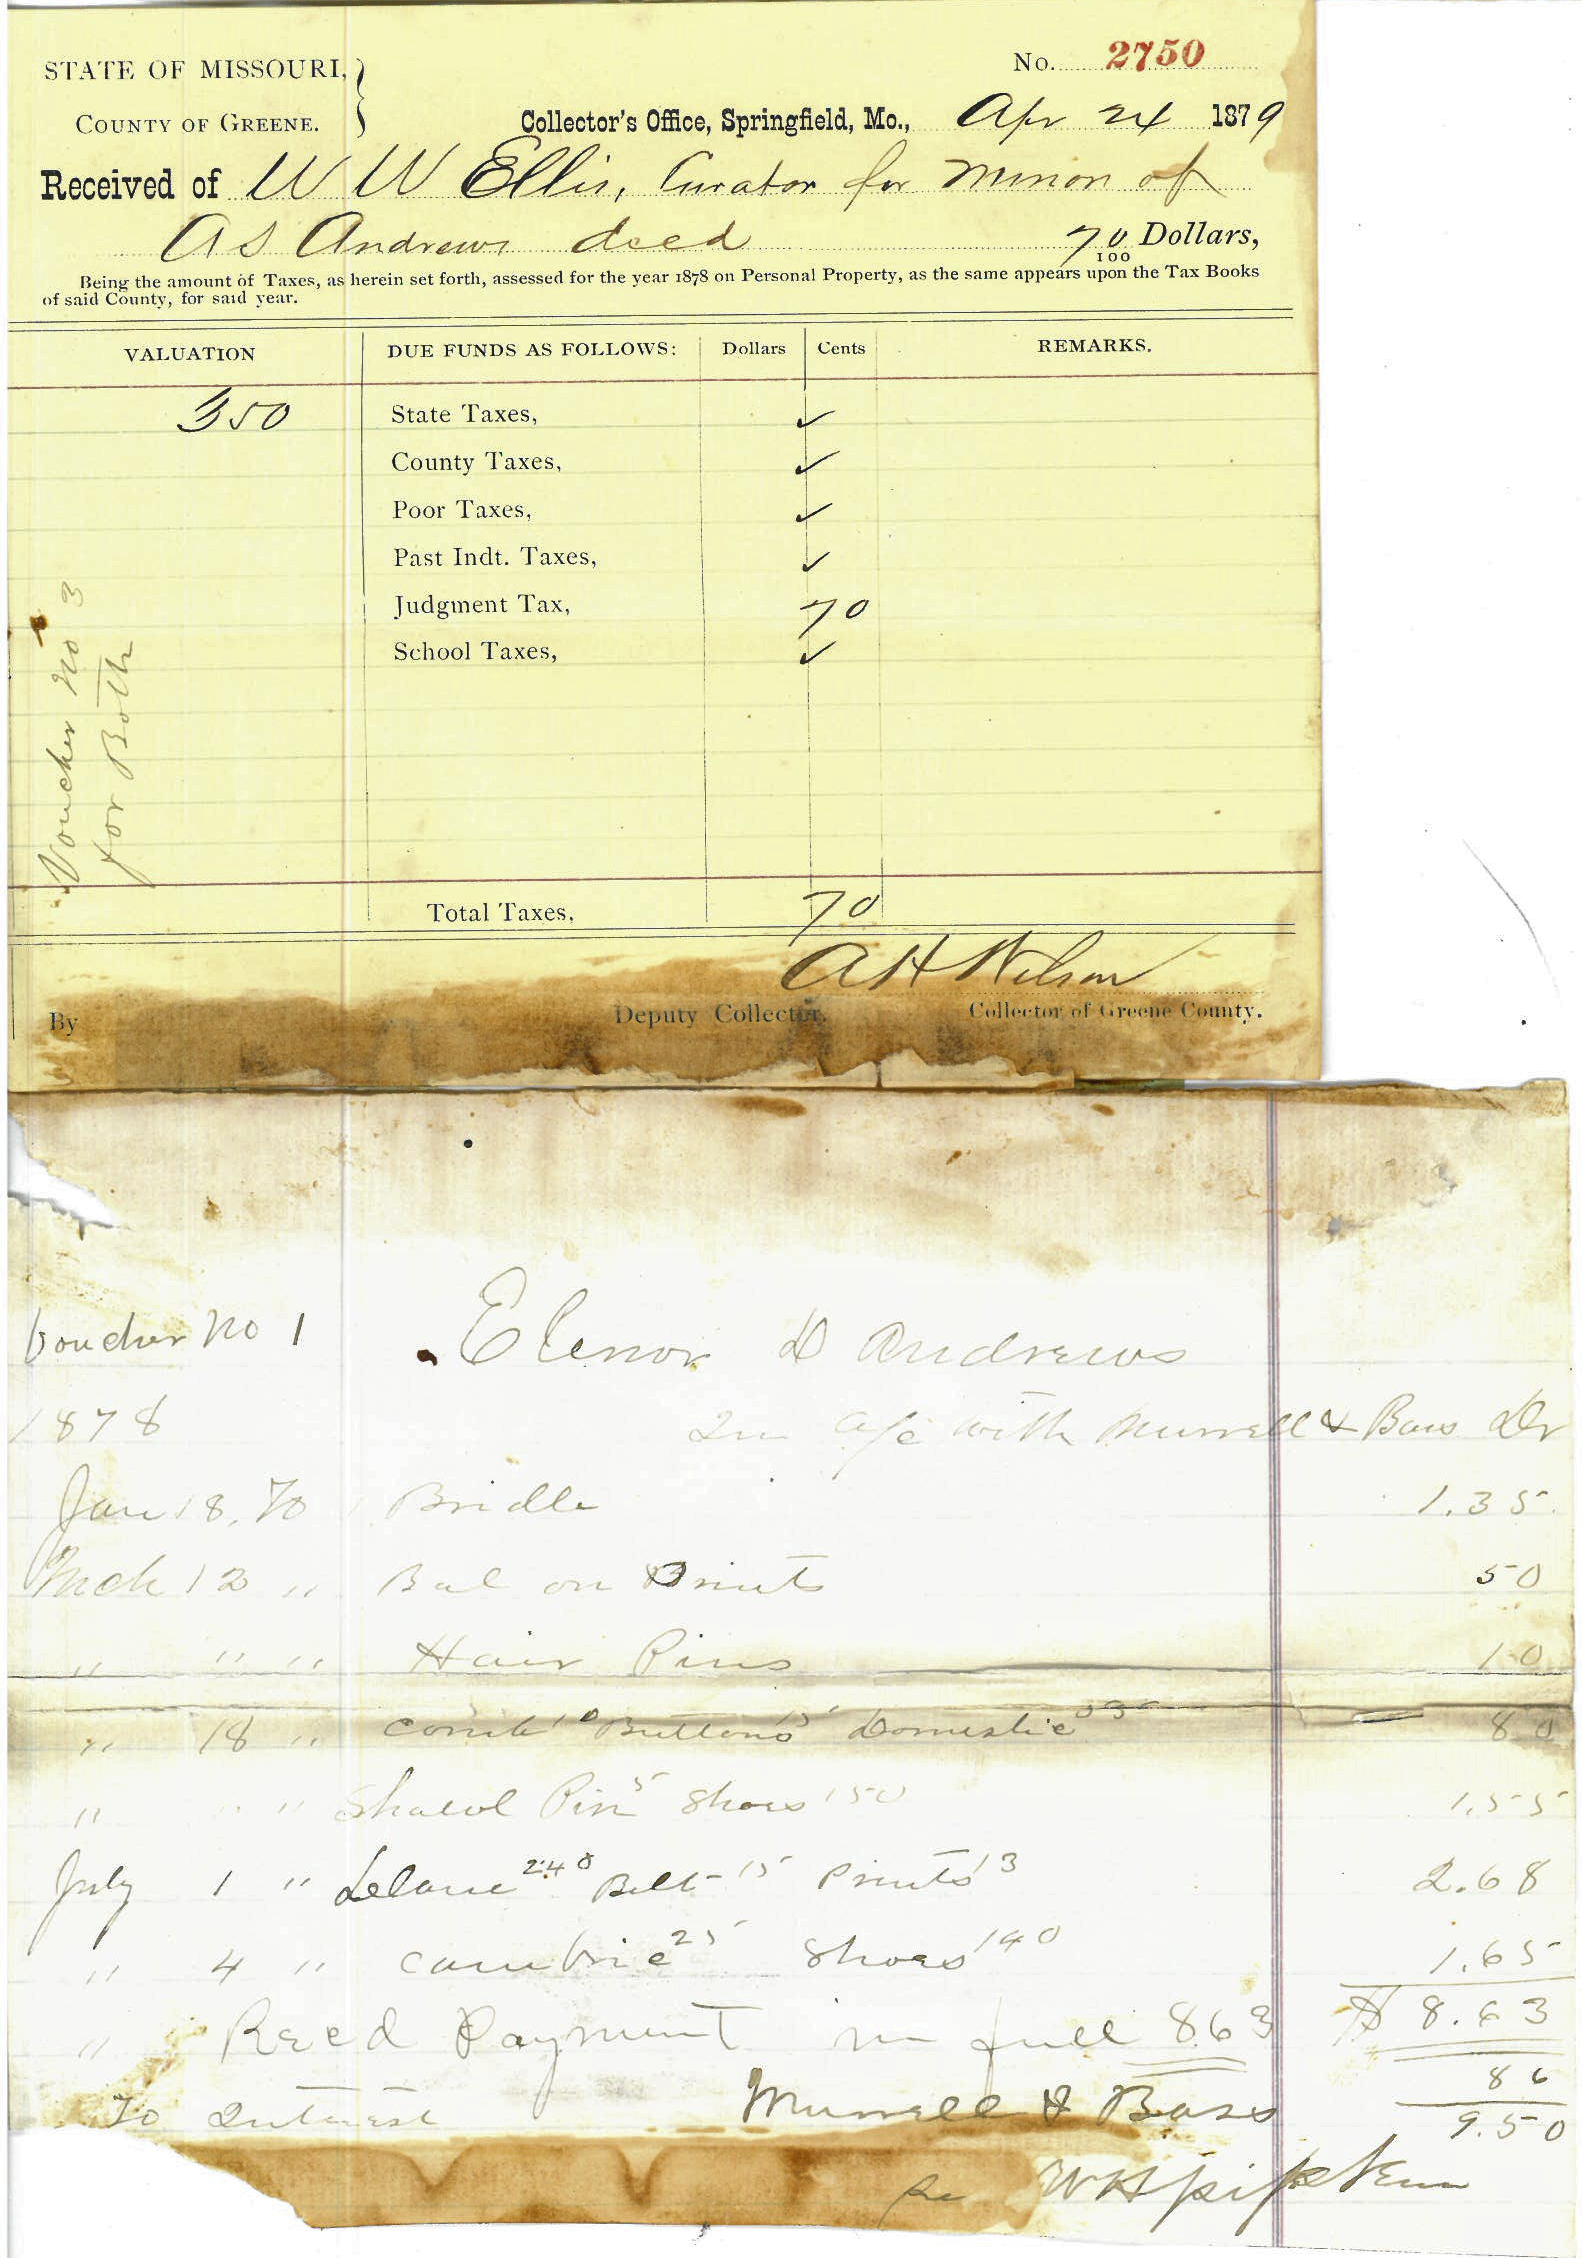 STATE OF MISSOURI, No. 2750
COUNTY OF GREENE. Collector's Office, Springfield, Mo., Apr 24 1879
Received of W W Ellis, Curator for minon of
A S Andrews decd 70/100 Dollars,
Being the amount of Taxes, as herein set forth, assessed for the year 1878 on Personal Property, as the same appears upon the Tax Books
of said County, for said year.
VALUATION DUE FUNDS AS FOLLOWS: Dollars Cents REMARKS.
350 State Taxes, ✓
County Taxes, ✓
Poor Taxes, ✓
Past Indt. Taxes, ✓
Judgment Tax, 70
School Taxes, ✓
Voucher No 3
for Both
Total Taxes, 70
A H Wilson
By Deputy Collector. Collector of Greene County.
Voucher No 1 Elenor D Andrews
1878 In a/c with Murrell & Bass Dr
Jan 18, To 1 Bridle 1.35
Mch 12 " Bal on Prints 50
" " " Hair Pins 10
" 18 " Comb 10 Buttons 15 Domestic 55 80
" " " Shawl Pin 5 Shoes 150 1.55
July 1 " Delane 2.40 Belt 15 Prints 13 2.68
" 4 " Cambric 25 Shoes 140 1.65
$ 8.63
" Recd Payment in full 8.63
86
To Interest Murrell & Bass
9.50
per W H Pipkin